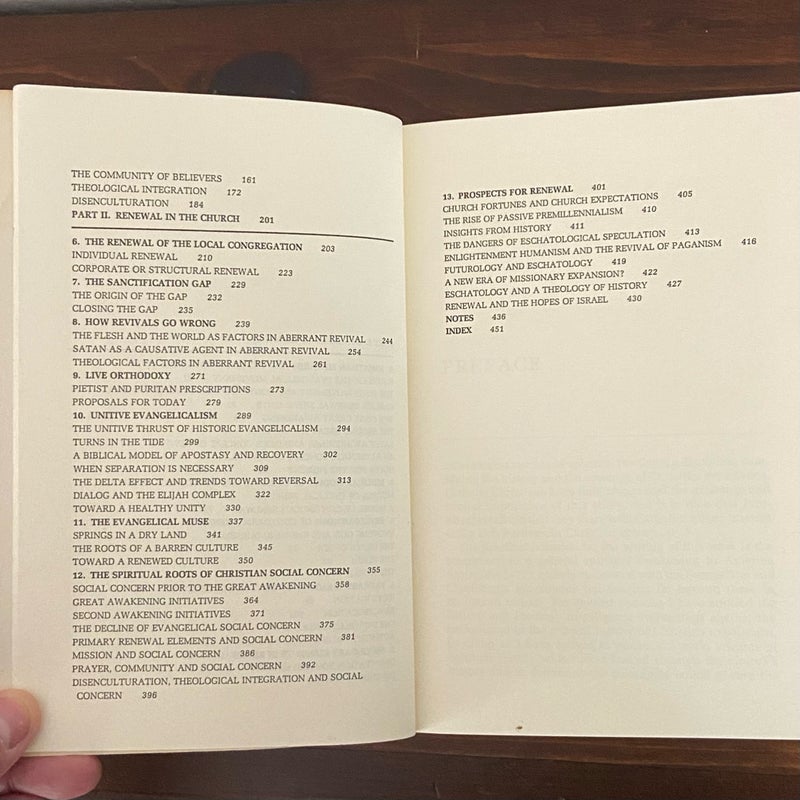 THE COMMUNITY OF BELIEVERS 161
THEOLOGICAL INTEGRATION 172
DISENCULTURATION 184
PART II. RENEWAL IN THE CHURCH 201
6. THE RENEWAL OF THE LOCAL CONGREGATION 203
INDIVIDUAL RENEWAL 210
CORPORATE OR STRUCTURAL RENEWAL 223
7. THE SANCTIFICATION GAP 229
THE ORIGIN OF THE GAP 232
CLOSING THE GAP 235
8. HOW REVIVALS GO WRONG 239
THE FLESH AND THE WORLD AS FACTORS IN ABERRANT REVIVAL 244
SATAN AS A CAUSATIVE AGENT IN ABERRANT REVIVAL 254
THEOLOGICAL FACTORS IN ABERRANT REVIVAL 261
9. LIVE ORTHODOXY 271
PIETIST AND PURITAN PRESCRIPTIONS 273
PROPOSALS FOR TODAY 279
10. UNITIVE EVANGELICALISM 289
THE UNITIVE THRUST OF HISTORIC EVANGELICALISM 294
TURNS IN THE TIDE 299
A BIBLICAL MODEL OF APOSTASY AND RECOVERY 302
WHEN SEPARATION IS NECESSARY 309
THE DELTA EFFECT AND TRENDS TOWARD REVERSAL 313
DIALOG AND THE ELIJAH COMPLEX 322
TOWARD A HEALTHY UNITY 330
11. THE EVANGELICAL MUSE 337
SPRINGS IN A DRY LAND 341
THE ROOTS OF A BARREN CULTURE 345
TOWARD A RENEWED CULTURE 350
12. THE SPIRITUAL ROOTS OF CHRISTIAN SOCIAL CONCERN 355
SOCIAL CONCERN PRIOR TO THE GREAT AWAKENING 358
GREAT AWAKENING INITIATIVES 364
SECOND AWAKENING INITIATIVES 371
THE DECLINE OF EVANGELICAL SOCIAL CONCERN 375
PRIMARY RENEWAL ELEMENTS AND SOCIAL CONCERN 381
MISSION AND SOCIAL CONCERN 386
PRAYER, COMMUNITY AND SOCIAL CONCERN 392
DISENCULTURATION, THEOLOGICAL INTEGRATION AND SOCIAL
CONCERN 396
13. PROSPECTS FOR RENEWAL 401
CHURCH FORTUNES AND CHURCH EXPECTATIONS 405
THE RISE OF PASSIVE PREMILLENNIALISM 410
INSIGHTS FROM HISTORY 411
THE DANGERS OF ESCHATOLOGICAL SPECULATION 413
ENLIGHTENMENT HUMANISM AND THE REVIVAL OF PAGANISM 416
FUTUROLOGY AND ESCHATOLOGY 419
A NEW ERA OF MISSIONARY EXPANSION? 422
ESCHATOLOGY AND A THEOLOGY OF HISTORY 427
RENEWAL AND THE HOPES OF ISRAEL 430
NOTES 436
INDEX 451